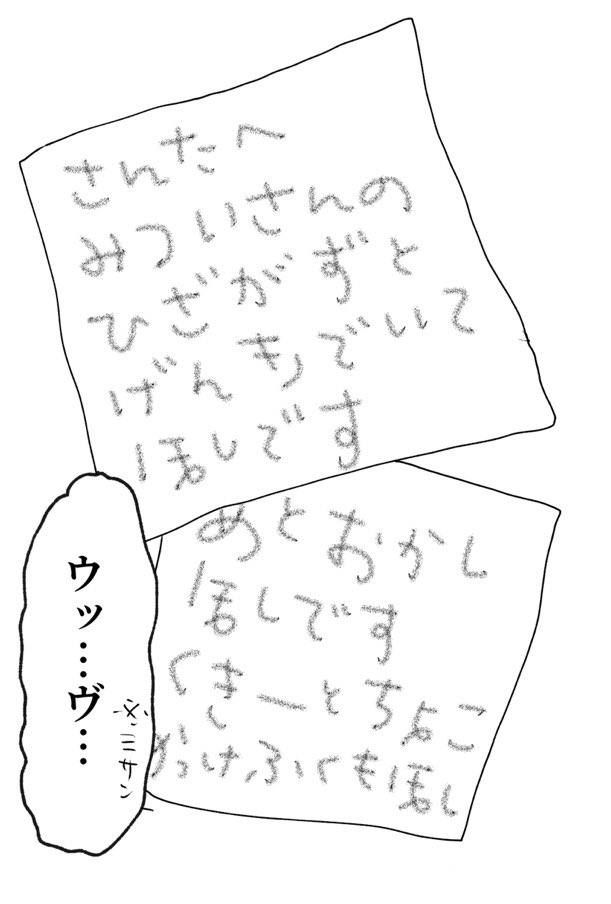 さんたへ
みついさんの
ひざがずと
げんきでいて
ほしです
あとおかし
ほしです
くきーとちょこ
がっけ、ふくもほし
ウッ…ヴ…
※ミサン